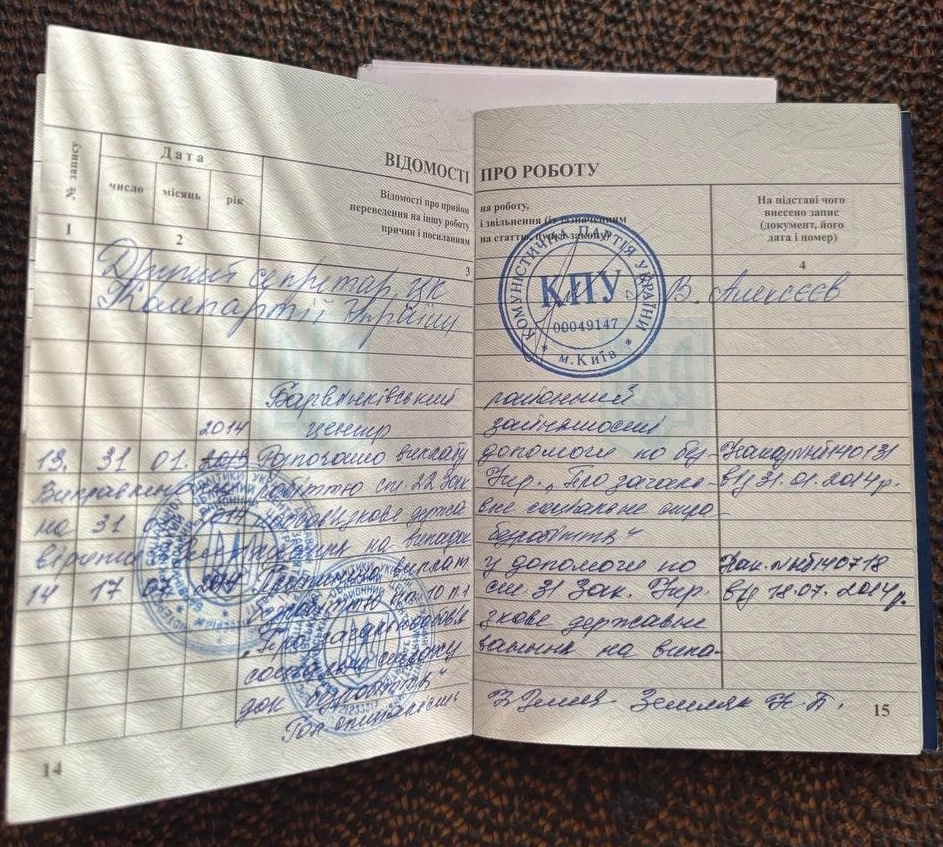 ВІДОМОСТІ ПРО РОБОТУ
№ запису
Дата
число місяць рік
Відомості про прийом на роботу,
переведення на іншу роботу і звільнення (із зазначенням
причин і посиланням на статтю, пункт закону)
На підставі чого
внесено запис
(документ, його
дата і номер)
1 2 3 4
Другий секретар ЦК В. Алексєєв
Компартії України
КОМУНІСТИЧНА ПАРТІЯ УКРАЇНИ
КПУ
00049147
* м.Київ *
Барвінківський районний
2014 центр зайнятості
13. 31 01. 2013 Розпочато виплату допомоги по без- Наказ №НТ140131
робіттю ст. 22 Зак. Укр. „Про загально- від 31.01.2014р.
на 31 2014 обов'язкове держав
на випадок безробіття"
14 17 07 2014 Припинено виплат у допомоги по Нак. №НТ140718
безробіттю п. 10 п.1 ст 31 Зак. Укр. від 18.07.2014р.
„Про загальнообов'яз кове державне
соціальне страху вання на випа-
док безробіття"
Гол. спеціаліст Земляк Н. П.
14
15